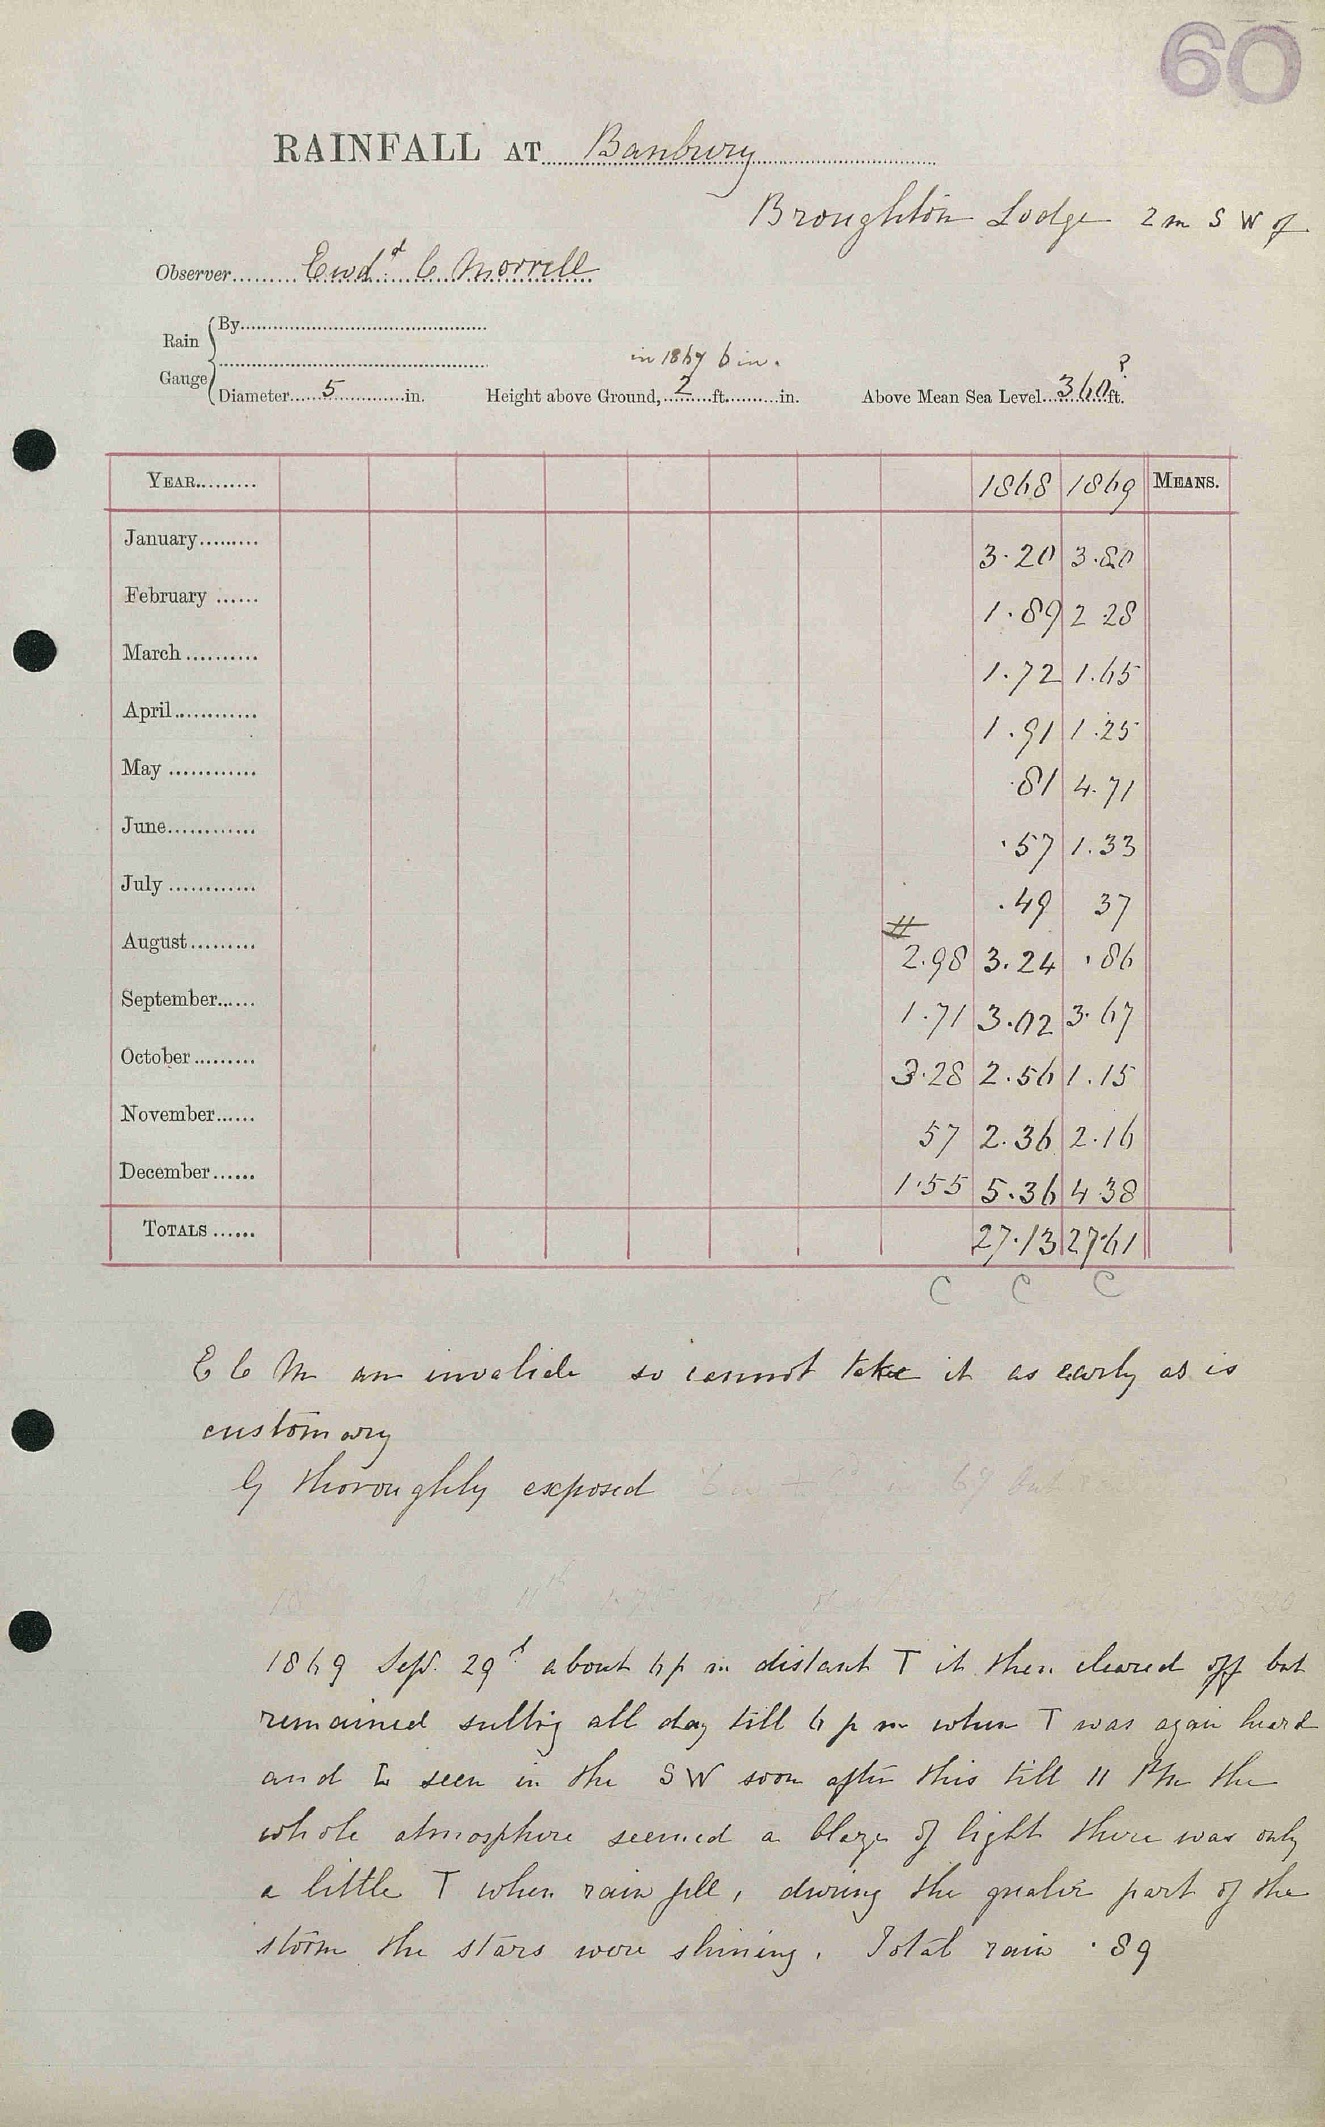 60
RAINFALL AT Banbury
Broughton Lodge 2 m S W of
Observer Ewd.d C Morrell
Rain Gauge { By
in 1867 6 in.
Diameter 5 in. Height above Ground, 2 ft. in. Above Mean Sea Level 360 ? ft.
YEAR 1868 1869 MEANS.
January 3.20 3.80
February 1.89 2 28
March 1.72 1.65
April 1.91 1.25
May .81 4.71
June .57 1.33
July .49 37
August 2.98 3.24 .86
September 1.71 3.02 3.67
October 3.28 2.56 1.15
November 57 2.36 2.16
December 1.55 5.36 4 38
TOTALS 27.13 27.61
C C C
E C M an invalide so cannot take it as early as is
customary
G thoroughly exposed
1869 Sept. 29 about 6 p m distant T it then cleared off but
remained sultry all day till 6 p m when T was again heard
and L seen in the S W soon after this till 11 PM the
whole atmosphere seemed a blaze of light there was only
a little T when rain fell, during the greater part of the
storm the stars were shining. Total rain .89